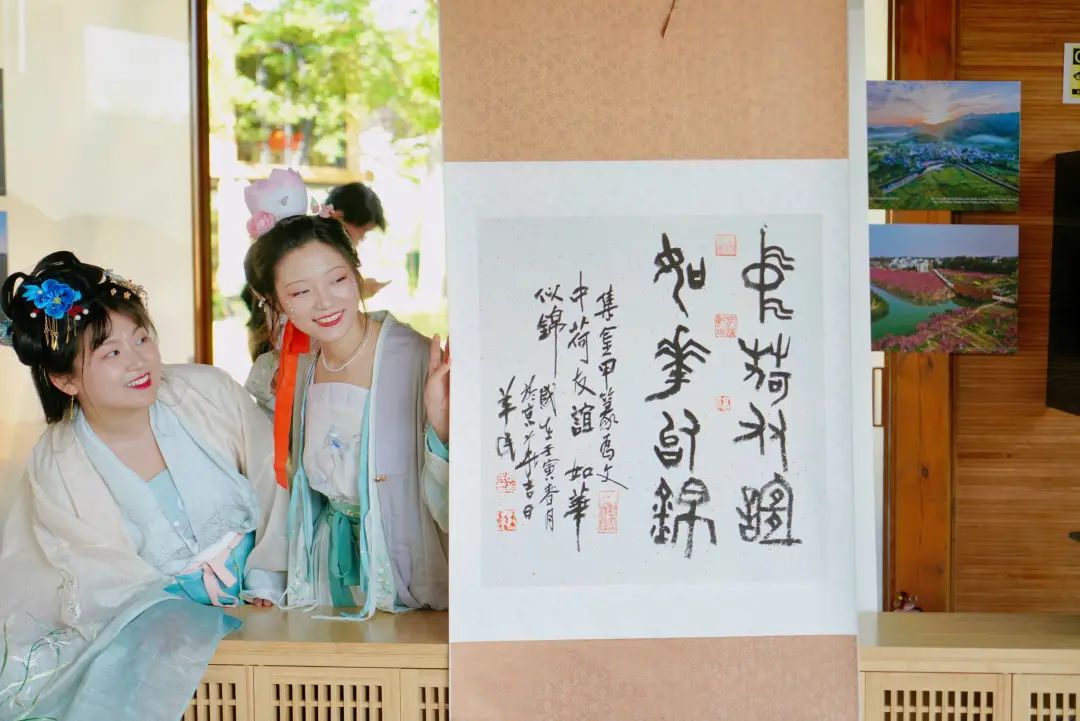 中荷友誼
如華似錦
集金甲篆為文
中荷友誼 如華
似錦
歲在壬寅春月
於京吉日